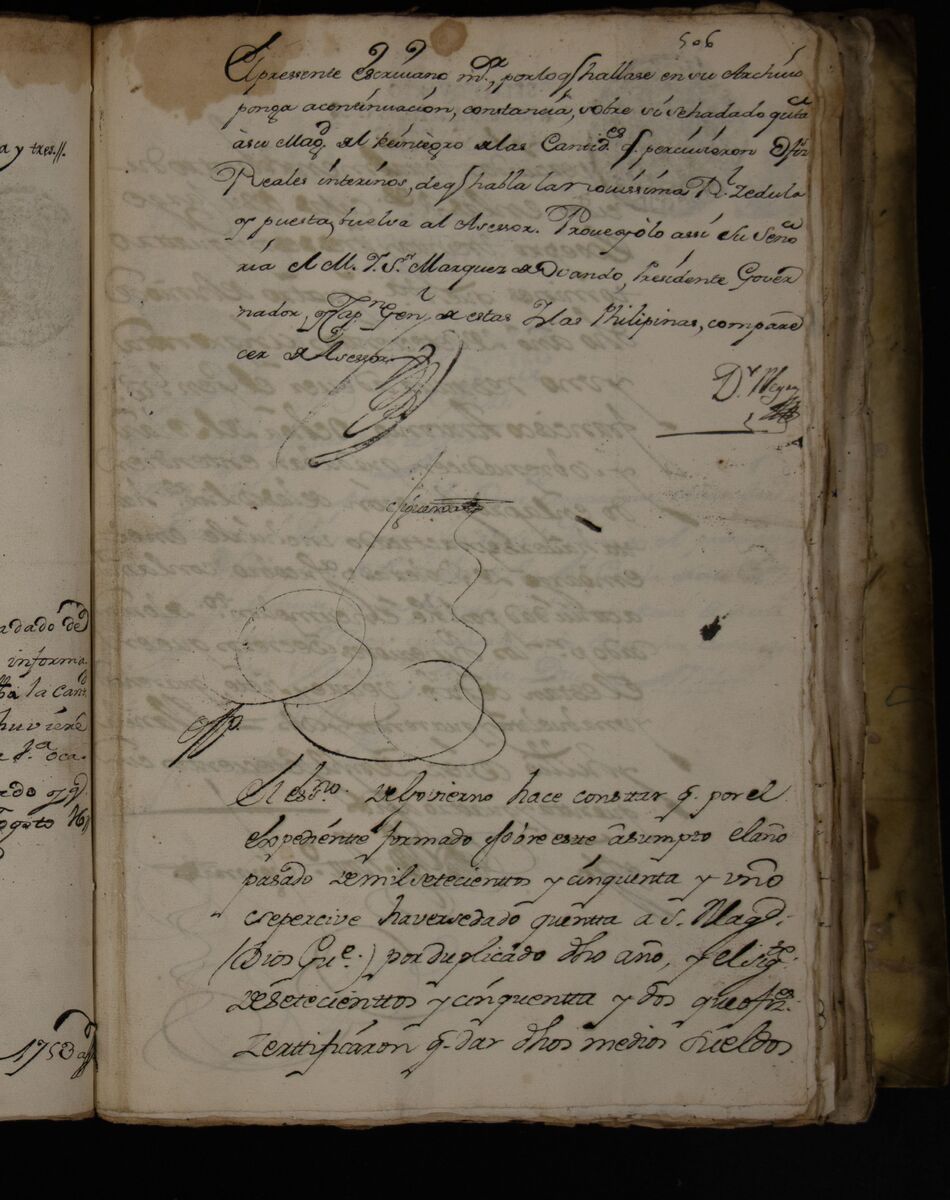 a y tres.//.
506
El pressente escrivano mr., por lo q̃ hallase en su Archivo
ponga acontinuacion, constancia, sobre si se ha dado quta
à su Magd. del Reintegro de las Cantides q. percivieron
Reales interinos, de q̃ habla la novissima Rl. Zedula
y puesta, buelva al Asessor. Proveyólo assi Su Seño
ria el M. Y. Sr. Marquez de Ovando, Presidente Gover
nador, y Capn Genl de estas Yslas Philipinas, comparé
cer de Asessor
Dr.
adado de
informa
la cantd
huviere
oca.
1753
El esno. de Govierno hace constar q. por el
Expediente formado sobre este asumpto el año
pasado de mil setecienttos y cinquenta y uno
se percive haverse dado quentta a S. Magd.
(Dios Gue.) por duplicado dho año, y el sigte.
de setecienttos y cinquentta y dos que ofizs.
Zerttificaron q. dar dhos medios sueldos